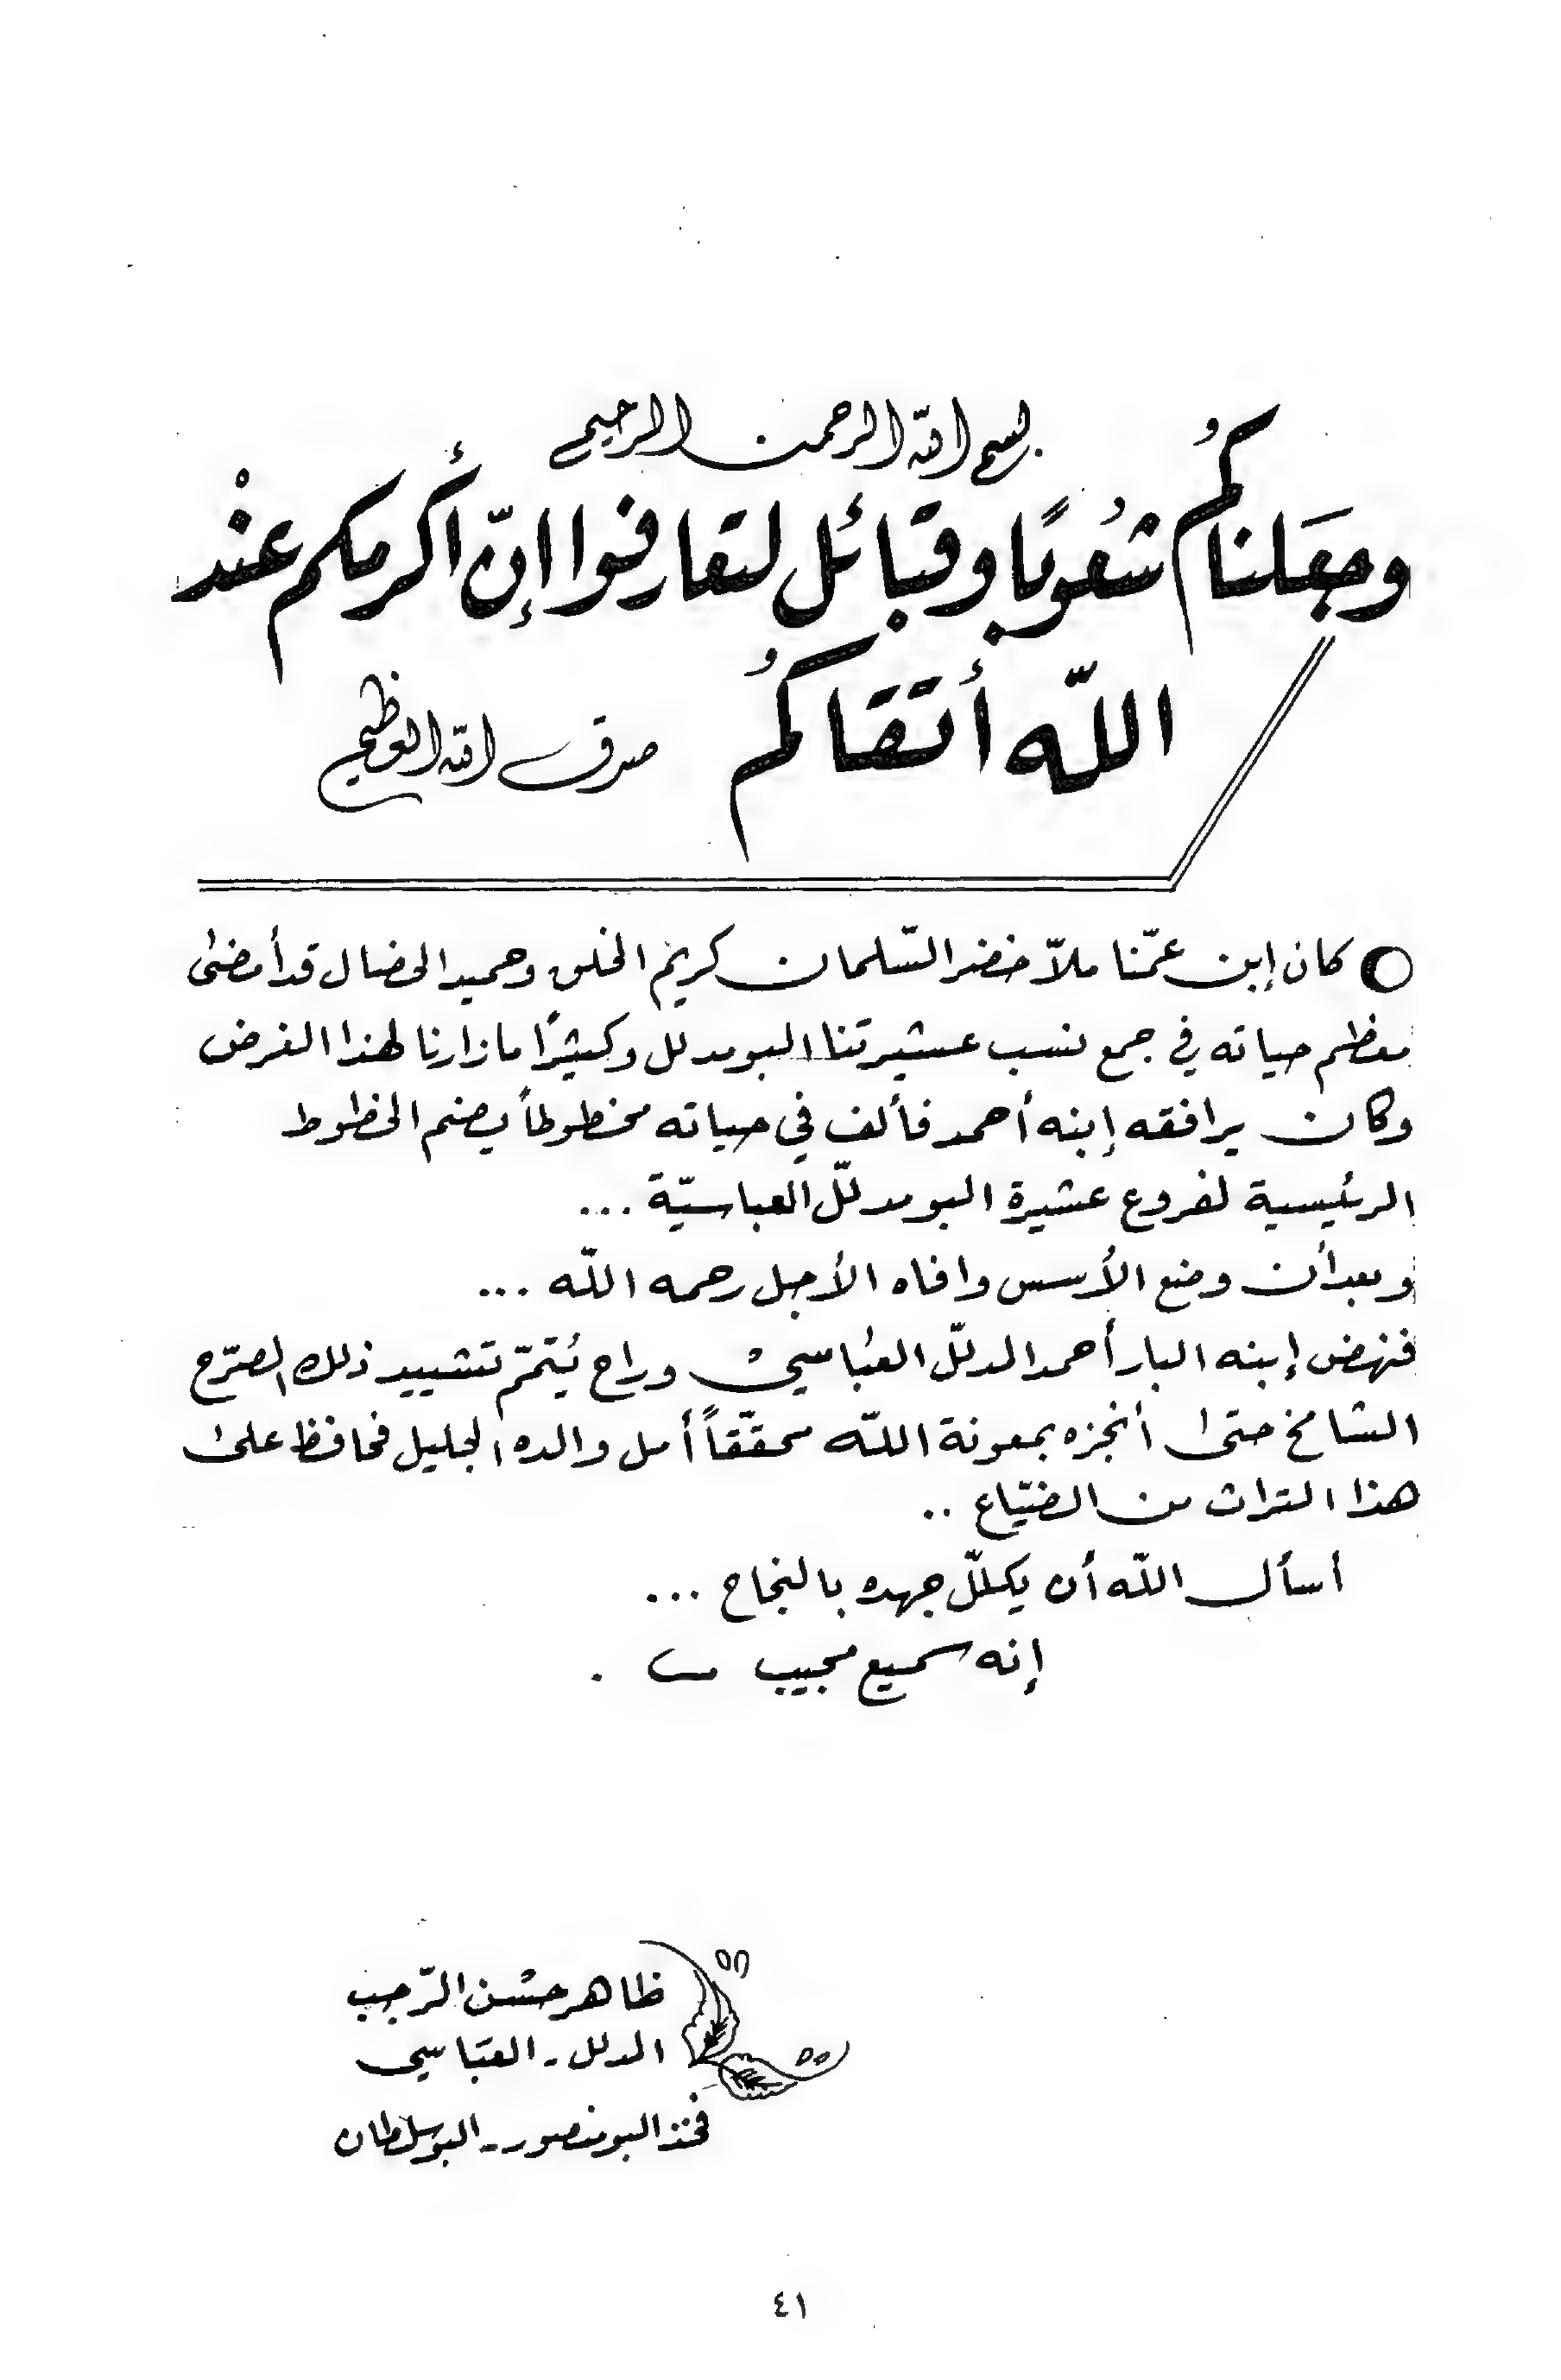 بسم الله الرحمن الرحيم
وجعلناكُم شعُوبًا وقبائل لتعارفوا إنّ أكرمكم عنْد
اللّه أتقاكمُ صدق الله العظيم
كان إبن عمّنا ملاّ خضر السّلمان كريم الخلق وحميد الخصال قد أمضى
معظم حياته في جمع نسب عشيرتنا البومدلل وكثيرًا ما زارنا لهذا الغرض
وكان يرافقه إبنه أحمد فألف في حياته مخطوطاً يضم الخطوط
الرئيسية لفروع عشيرة البومدللّ العباسيّة ...
وبعد أن وضع الأسس وافاه الأجل رحمه اللّه ...
فنهض إبنه البار أحمد المدللّ العبّاسيْ وراح يُتمّم تشييد ذلك الصرّح
الشامخ حتى أنجزه بمعونة اللّه محققّاً أمل والده الجليل فحافظ على
هذا التراث من الضيّاع ..
أسأل اللّه أن يكللّ جهده بالنجاح ...
إنه سميع مجيب .
ظاهر حسْن الرّجب
المدلل - العبّاسي
فخذ البومنصور - البوسلطان
٤١